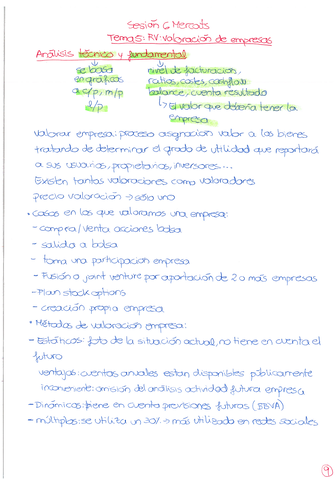 Sesión 6 Mercats
Tema 5: RV: valoración de empresas
Análisis técnico y fundamental
se basa nivel de facturacion,
en gráficos ratios, costes, cashflow
a c/p, m/p balance, cuenta resultado
l/p El valor que debería tener la
empresa
valorar empresa: proceso asignacion valor a los bienes
tratando de determinar el grado de utilidad que reportará
a sus usuarios, propietarios, inversores...
Existen tantas valoraciones como valoradores
precio valoración → sólo uno
• Casos en los que valoramos una empresa:
- compra/venta acciones bolsa
- salida a bolsa
- toma una participacion empresa
- Fusión o joint venture por aportación de 2 o más empresas
- Plan stock options
- creación propia empresa
• Métodos de valoracion empresa:
- Estáticos: foto de la situación actual, no tiene en cuenta el
futuro
ventajas: cuentas anuales estan disponibles públicamente
inconveniente: omisión del análisis actividad futura empresa
- Dinámicos: tiene en cuenta previsiones futuras (BBVA)
- múltiplos: se utiliza un 30% → más utilizado en redes sociales
9